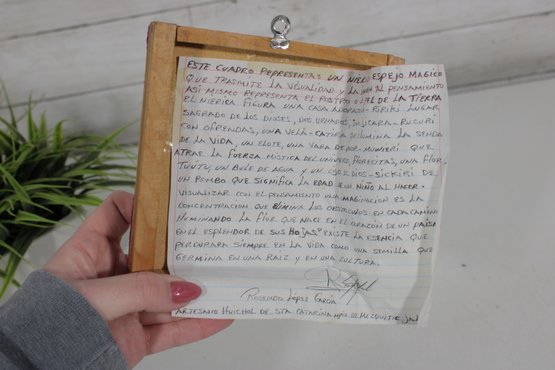 ESTE CUADRO REPRESENTAS UN NIEL ESPEJO MAGICO
QUE TRASMITE LA VISUALIDAD Y LA AL PENSAMIENTO
ASI MISMO REPRESENTA EL ROSTRO DE LA TIERRA
EL NIERICA FIGURA UNA CASA RIRIKI LUGAR
SAGRADO DE LOS DIOSES, DOS VENADOS, JICARA-RUCURI
CON OFRENDAS, UNA VELA-CATIRA ILUMINA LA SENDA
DE LA VIDA, UN ELOTE, UNA VARA DE MUWIERI QUE
ATRAE LA FUERZA MISTICA DEL FLORECITAS, UNA FLOR
TUUTU, UN BULE DE AGUA Y UN SICKIRI DE
UN ROMBO QUE SIGNIFICA LA EDAD UN NIÑO AL NACER.
VISUALIZAR CON EL PENSAMIENTO UNA IMAGINACION ES LA
CONCENTRACION QUE ELIMINA LOS OBSTACULOS EN CADA CAMINO
ILUMINANDO LA FLOR QUE NACE EN EL CORAZON DE UN PAISA
EN EL ESPLENDOR DE SUS HOJAS" EXISTE LA ESENCIA QUE
PERDURARA SIEMPRE EN LA VIDA COMO UNA SEMILLA QUE
GERMINA EN UNA RAIZ Y EN UNA CULTURA.
ROSENDO LOPEZ GARCIA
ARTESANO HUICHOL DE STA. CATARINA MPIO. DE MEZQUITIC JAL